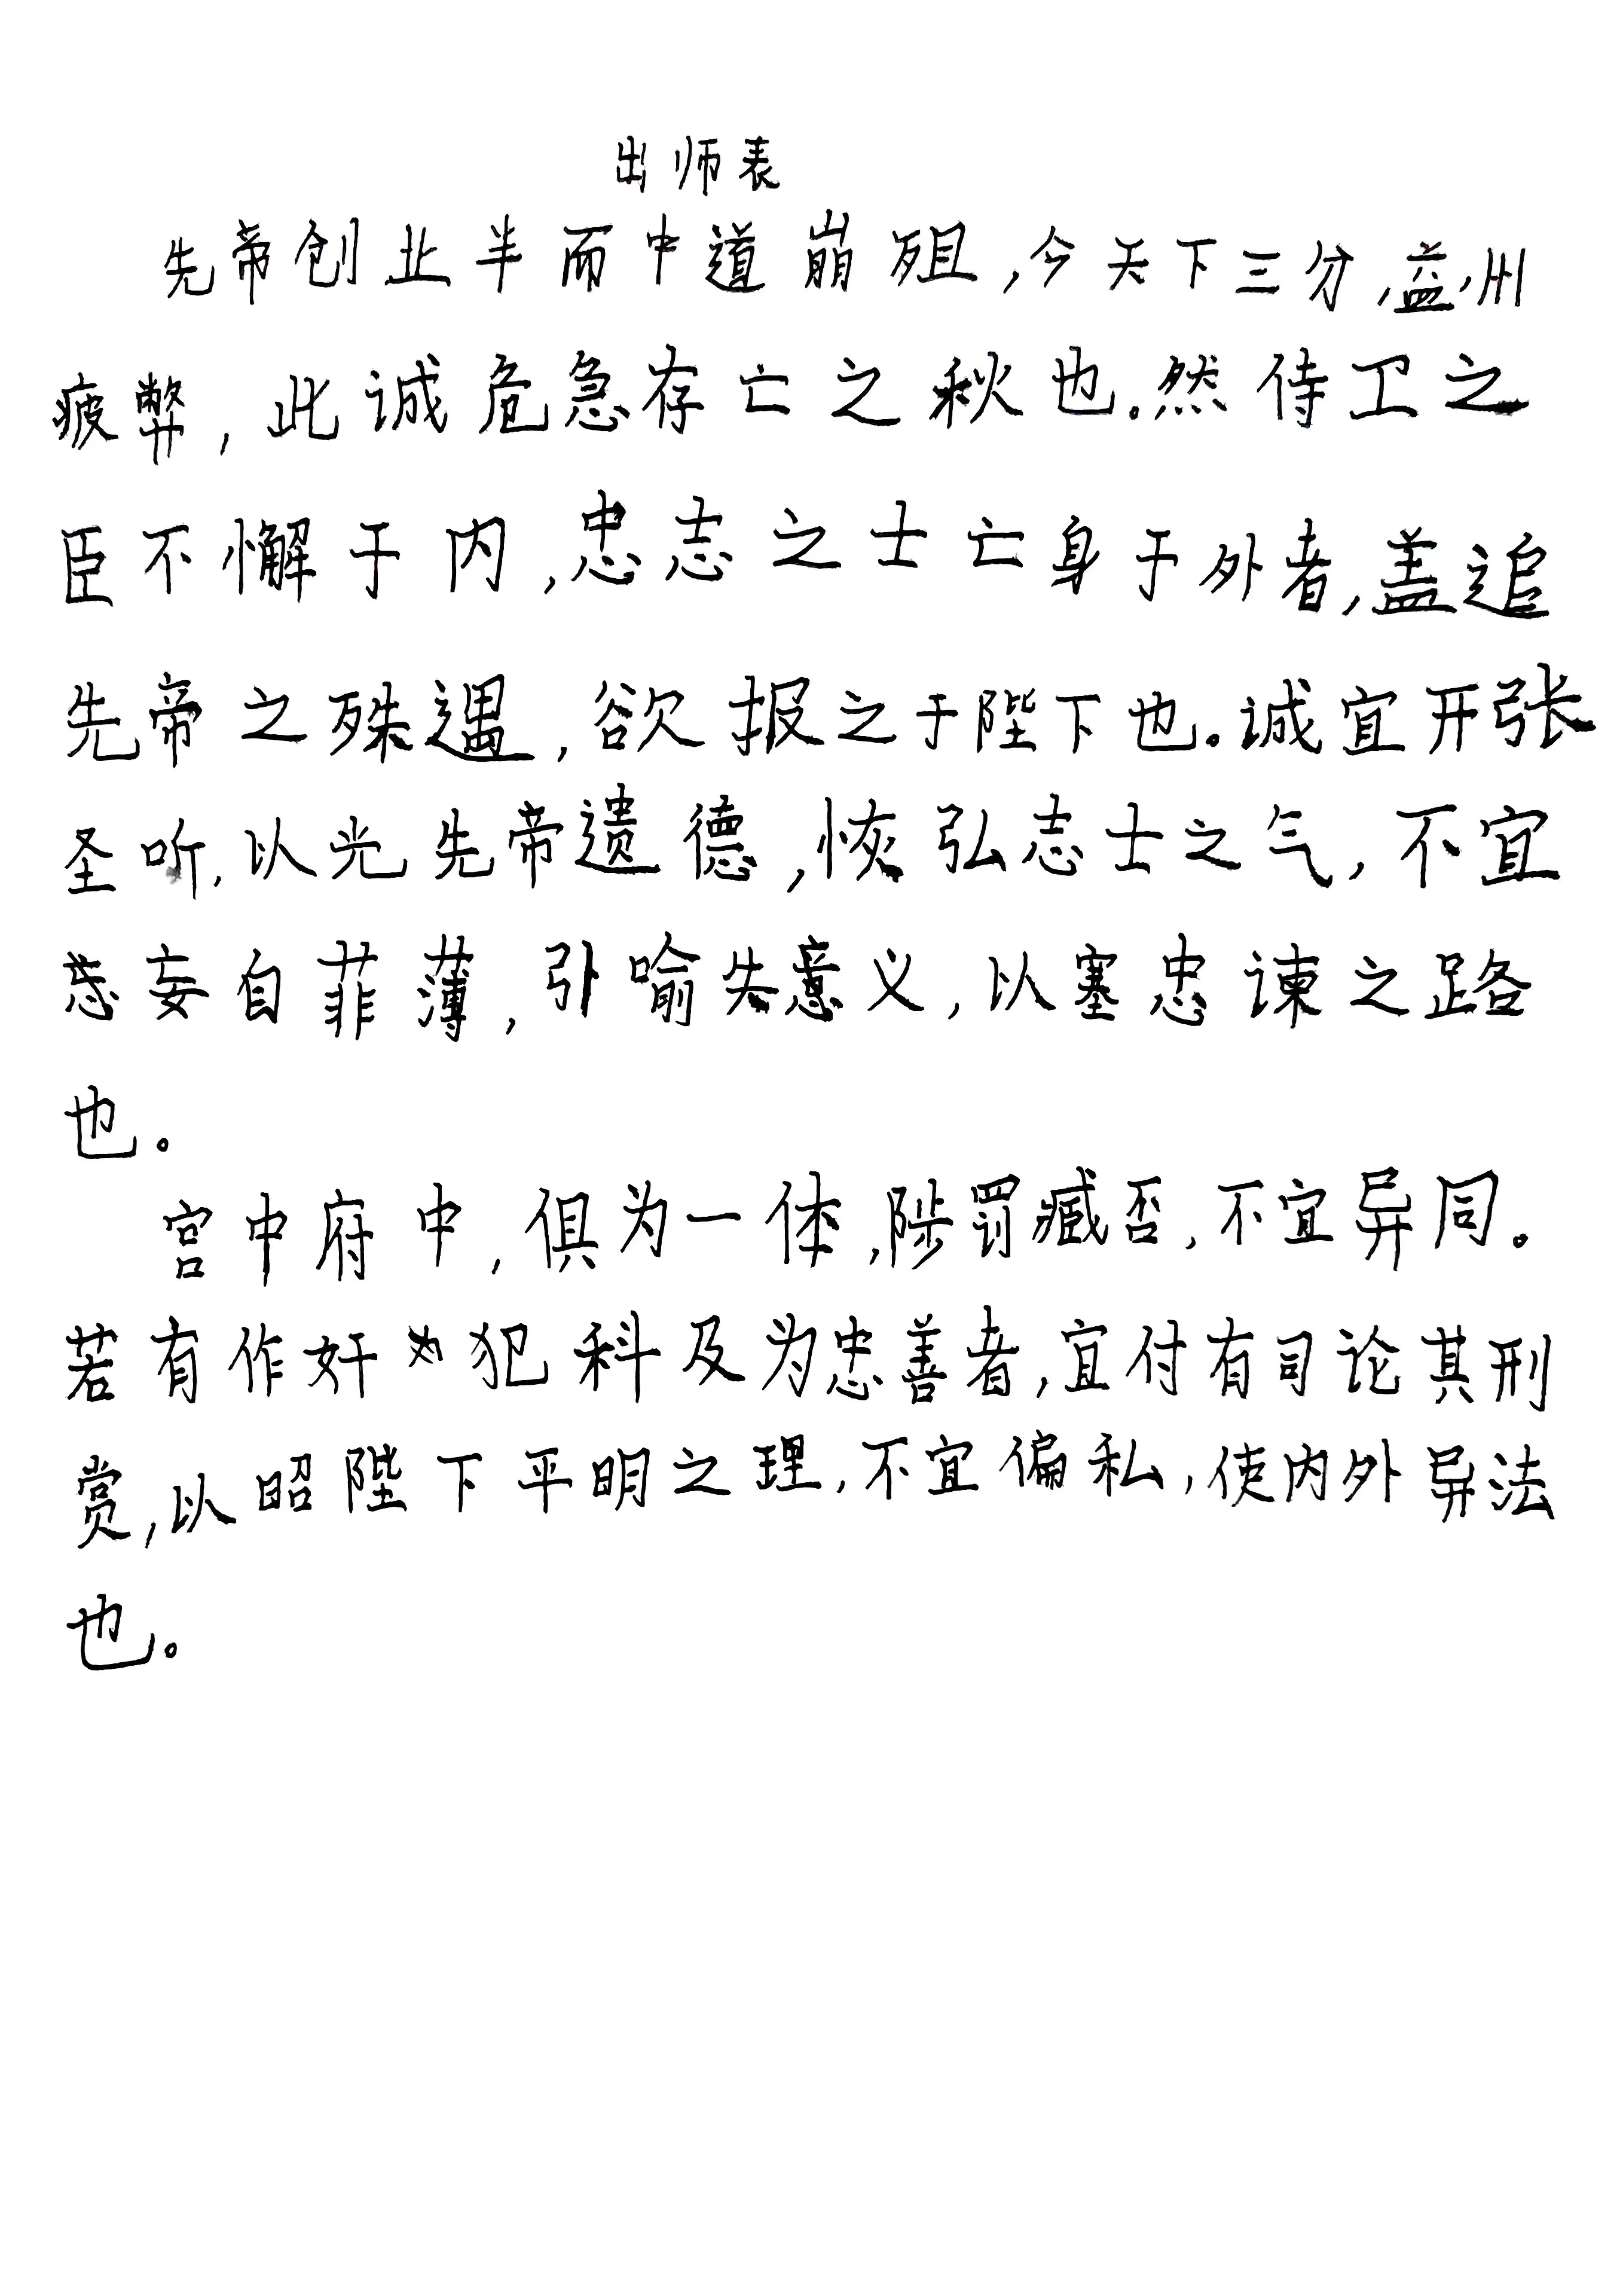 出师表
先帝创业半而中道崩殂,今天下三分,益州
疲弊,此诚危急存亡之秋也。然侍卫之
臣不懈于内,忠志之士亡身于外者,盖追
先帝之殊遇,欲报之于陛下也。诚宜开张
圣听,以光先帝遗德,恢弘志士之气,不宜
妄自菲薄,引喻失意义,以塞忠谏之路
也。
宫中府中,俱为一体,陟罚臧否,不宜异同。
若有作奸犯科及为忠善者,宜付有司论其刑
赏,以昭陛下平明之理,不宜偏私,使内外异法
也。